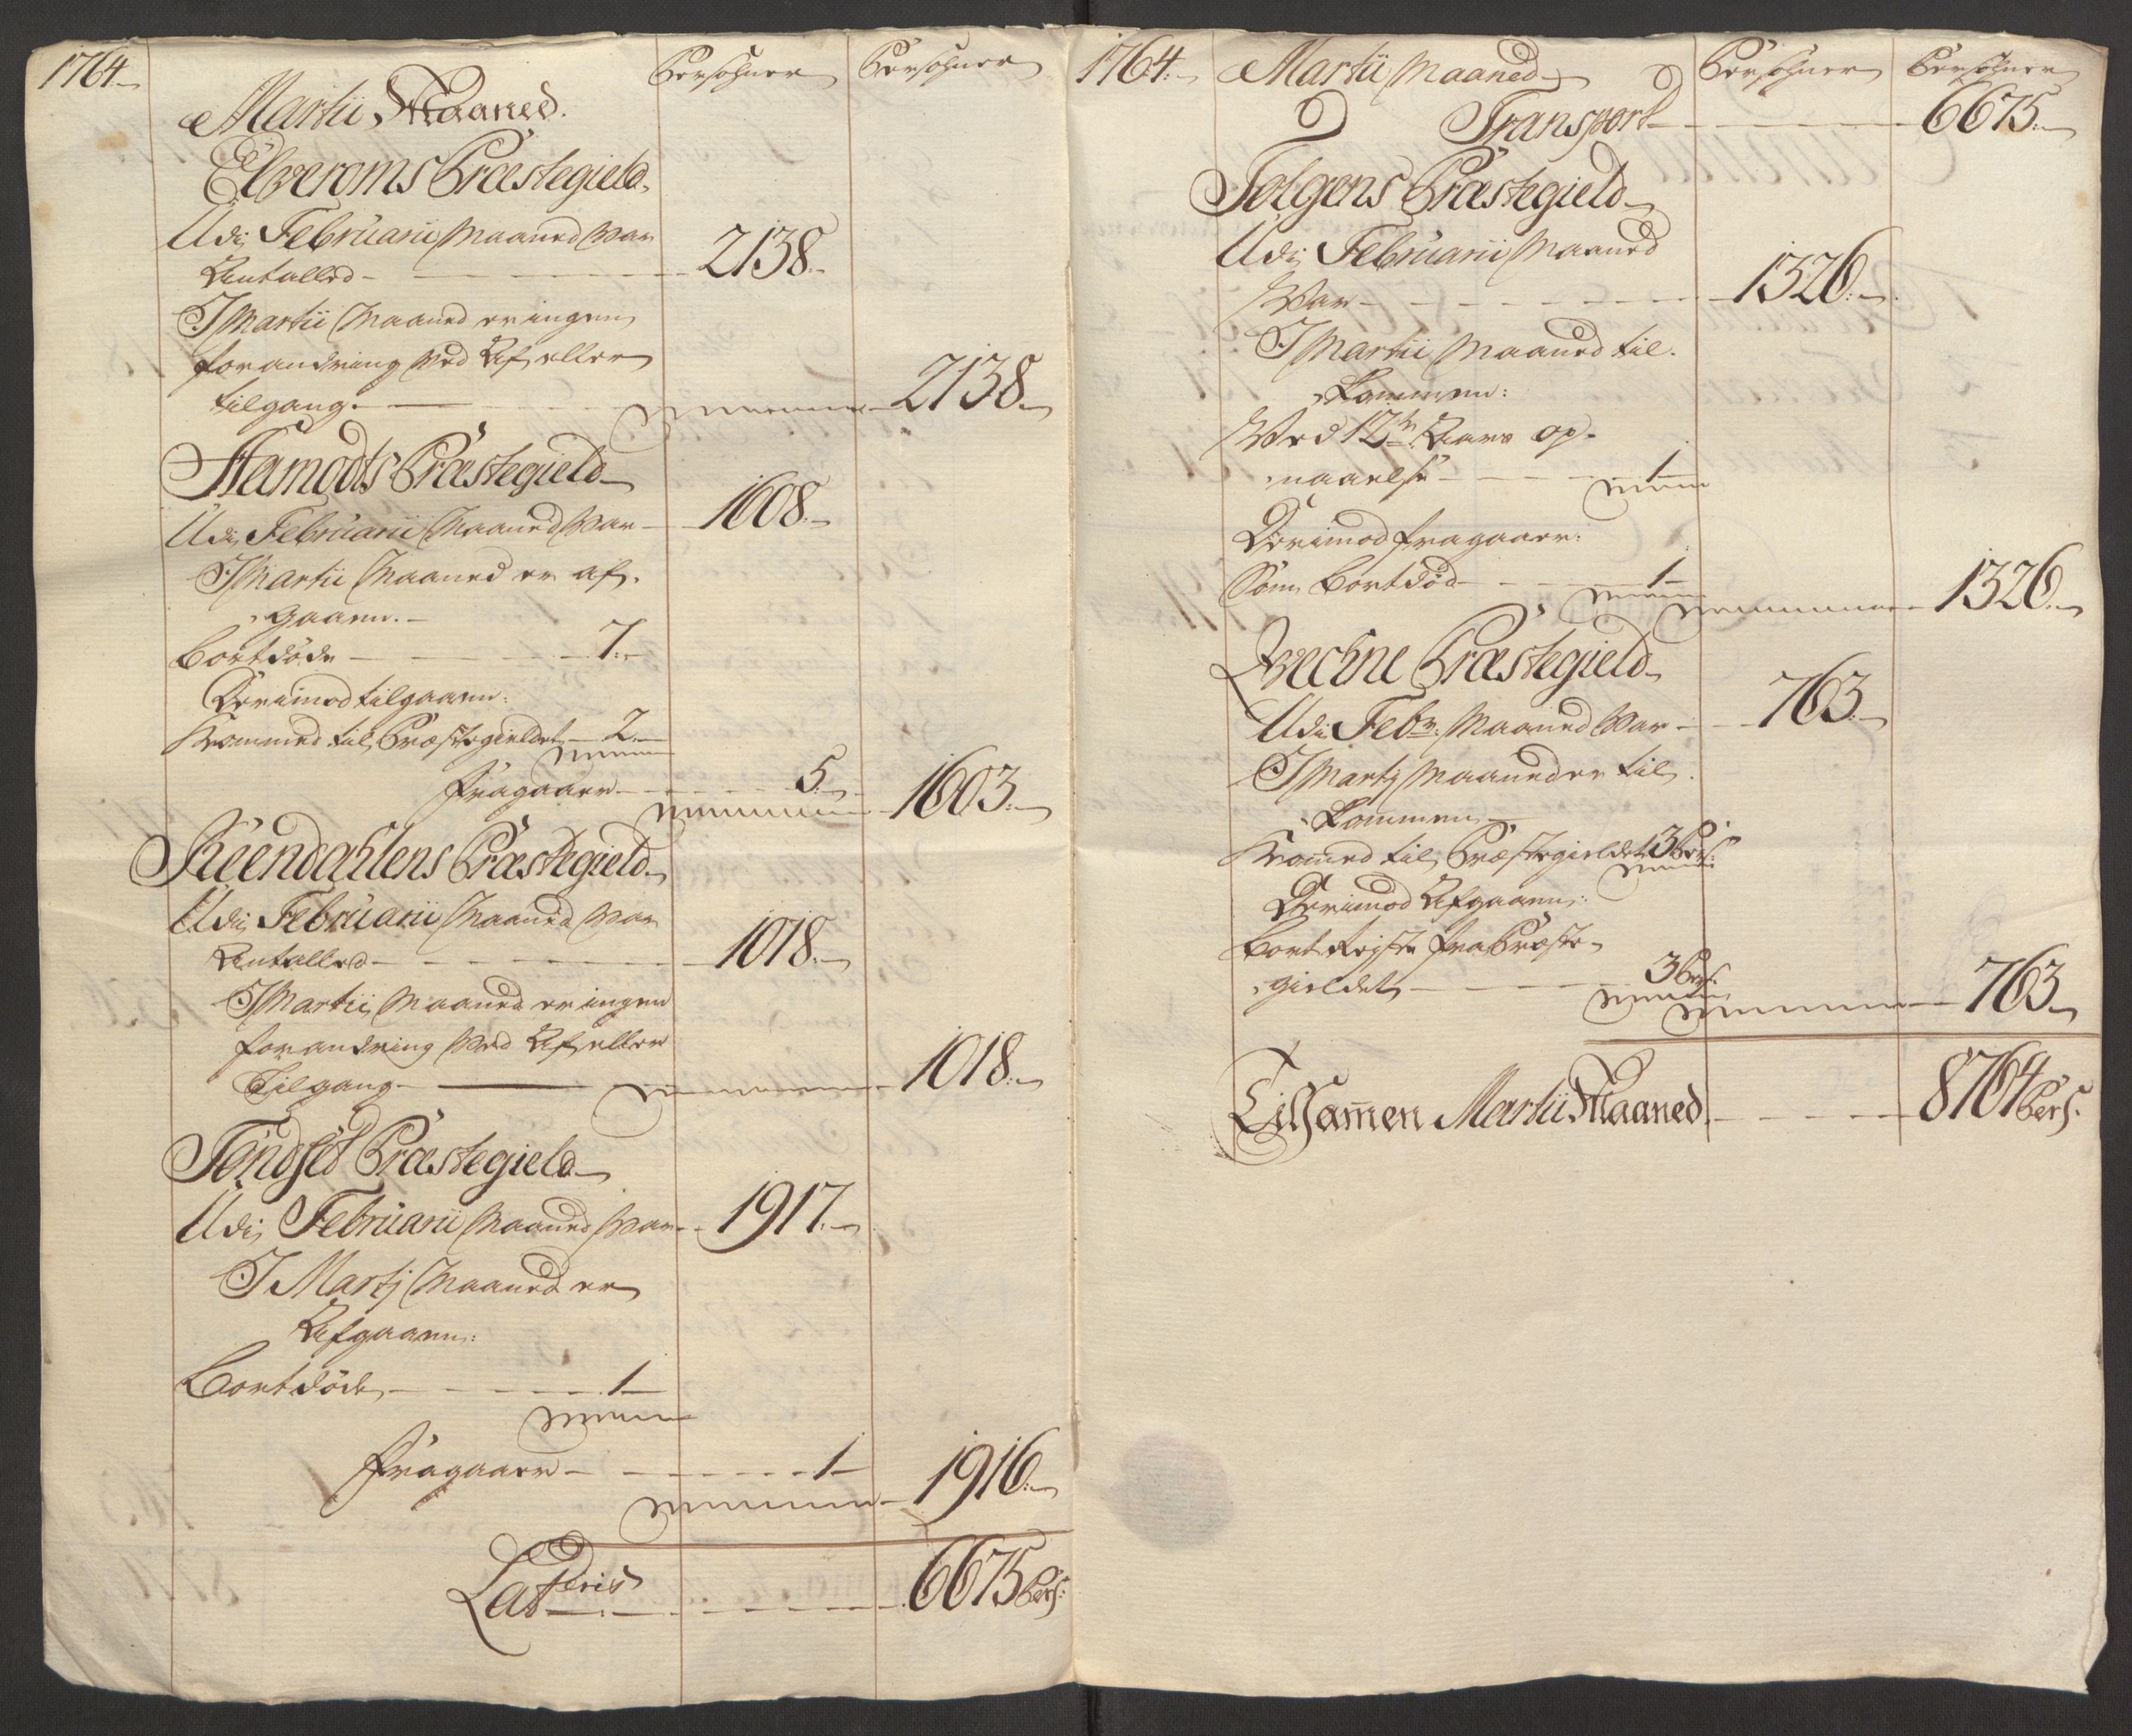 1764.
Persohner Persohner
Martii Maaned.
Elveroms Præstegield.
Udi Februarii Maaned var
Antalled - 2138.
I Martii Maaned er ingen
forandring ved Af eller
tilgang. - 2138.
Aamodts Præstegield
Udi Februarii Maaned var - 1608.
I Martii Maaned er af-
gaaen.
Bortdöde - 7.
Derimod tilgaaen:
Kommed til Præstegieldet - 2.
fragaaer - 5. 1603.
Reendahlens Præstegield
Udi Februarii Maaned var
Antalled - 1018.
I Martii Maaned er ingen
forandring ved Af eller
Tilgang - 1018.
Töndset Præstegield
Udi Februarii Maaned var - 1917.
I Martj Maaned er
Afgaaen:
Bortdöde - 1
fragaaer - 1 1916.
Lateris - 6675 Pers:
1764. Martii Maaned Persohner Persohner
Transport - 6675.
Tolgens Præstegield
Udi Februarii Maaned
var - 1326.
I Martii Maaned til-
kommen:
Ved 12te Aars op-
naaelse - 1
Derimod fragaaer:
Som Bortdöd - 1 1326.
Qvechne Præstegield
Udi Febr: Maaned var - 763.
I Martj Maaned er til-
kommen
Kommed til Præstegieldet 3 Pers:
Derimod Afgaaen:
Bort Rejste fra Præste-
gieldet - 3 Pers: 763.
Tilsamen Martii Maaned. - 8764 Pers: